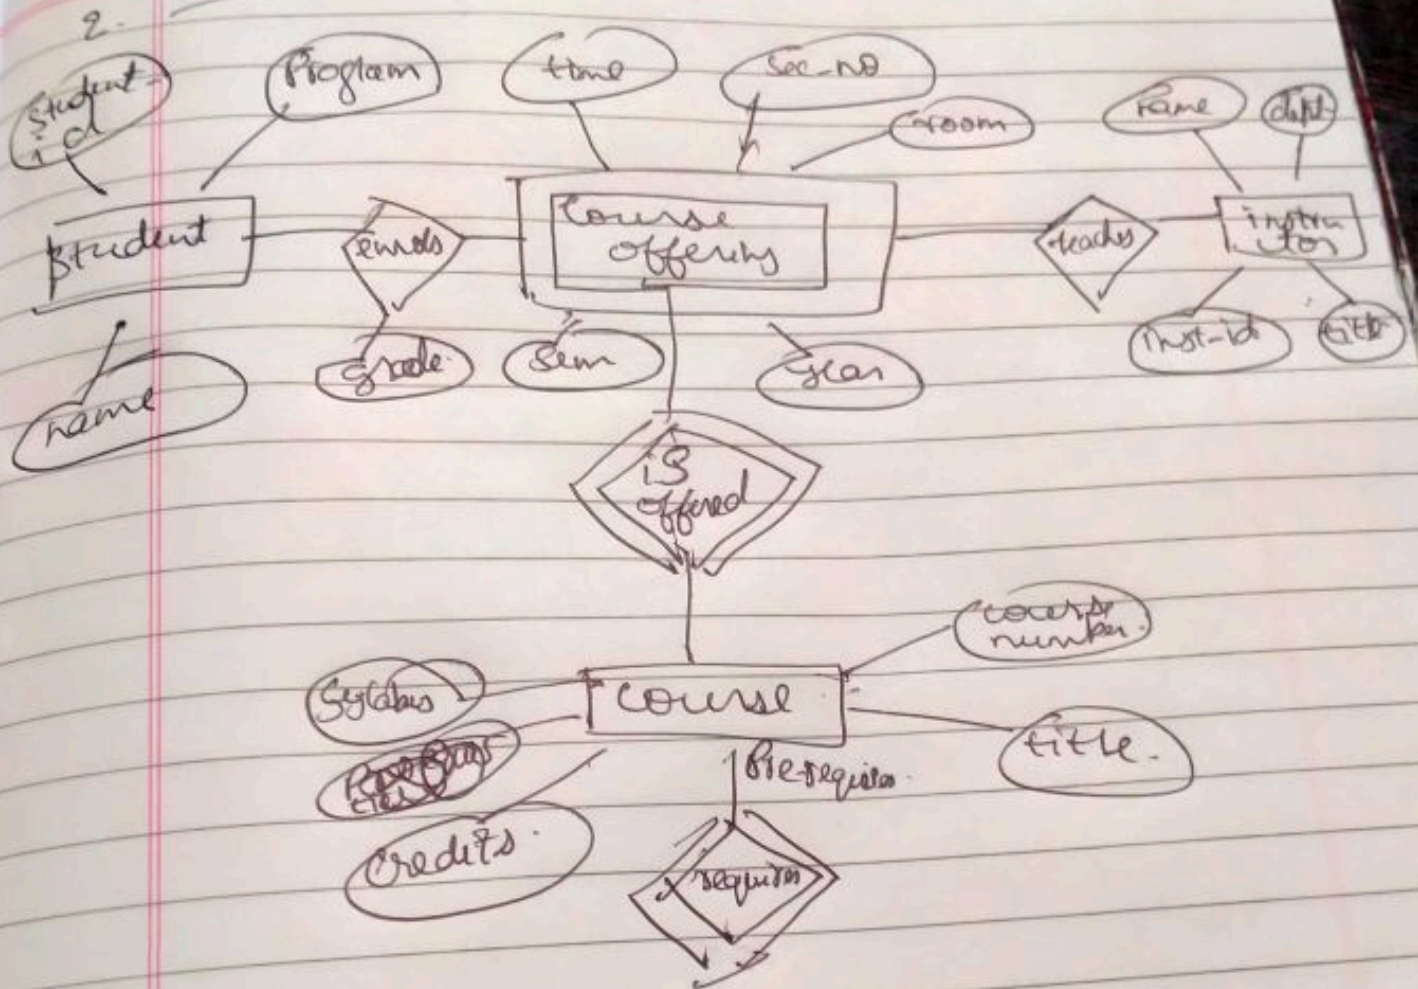 2.
Student
id
Program
time
Sec-no
room
name
dept
Student
enrols
Course
offering
teaches
instru
ctor
name
grade
Sem
year
inst-id
title
is
offered
course
number.
Syllabus
course
title.
Credits.
Pre-requires
requires